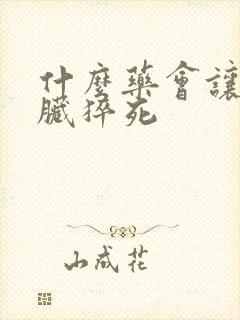 什麼藥會讓
臟猝死
山成花